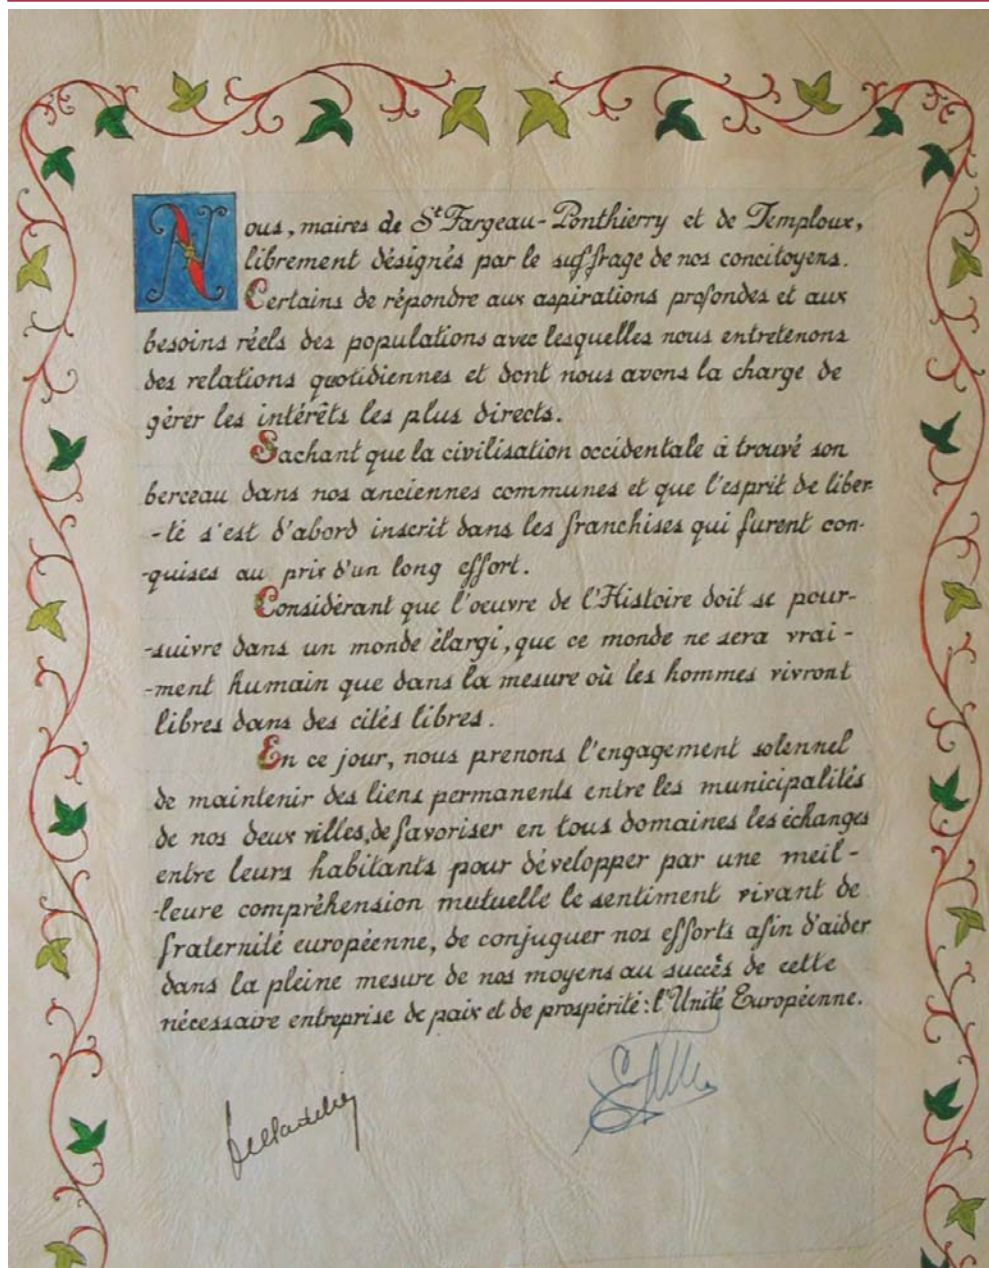 Nous, maires de St Fargeau-Ponthierry et de Temploux,
librement désignés par le suffrage de nos concitoyens.
Certains de répondre aux aspirations profondes et aux
besoins réels des populations avec lesquelles nous entretenons
des relations quotidiennes et dont nous avons la charge de
gérer les intérêts les plus directs.
Sachant que la civilisation occidentale à trouvé son
berceau dans nos anciennes communes et que l'esprit de liber-
-té s'est d'abord inscrit dans les franchises qui furent con-
-quises au prix d'un long effort.
Considérant que l'oeuvre de l'Histoire doit se pour-
-suivre dans un monde élargi, que ce monde ne sera vrai-
-ment humain que dans la mesure où les hommes vivront
libres dans des cités libres.
En ce jour, nous prenons l'engagement solennel
de maintenir des liens permanents entre les municipalités
de nos deux villes, de favoriser en tous domaines les échanges
entre leurs habitants pour développer par une meil-
-leure compréhension mutuelle le sentiment vivant de
fraternité européenne, de conjuguer nos efforts afin d'aider
dans la pleine mesure de nos moyens au succès de cette
nécessaire entreprise de paix et de prospérité : l'Unité Européenne.